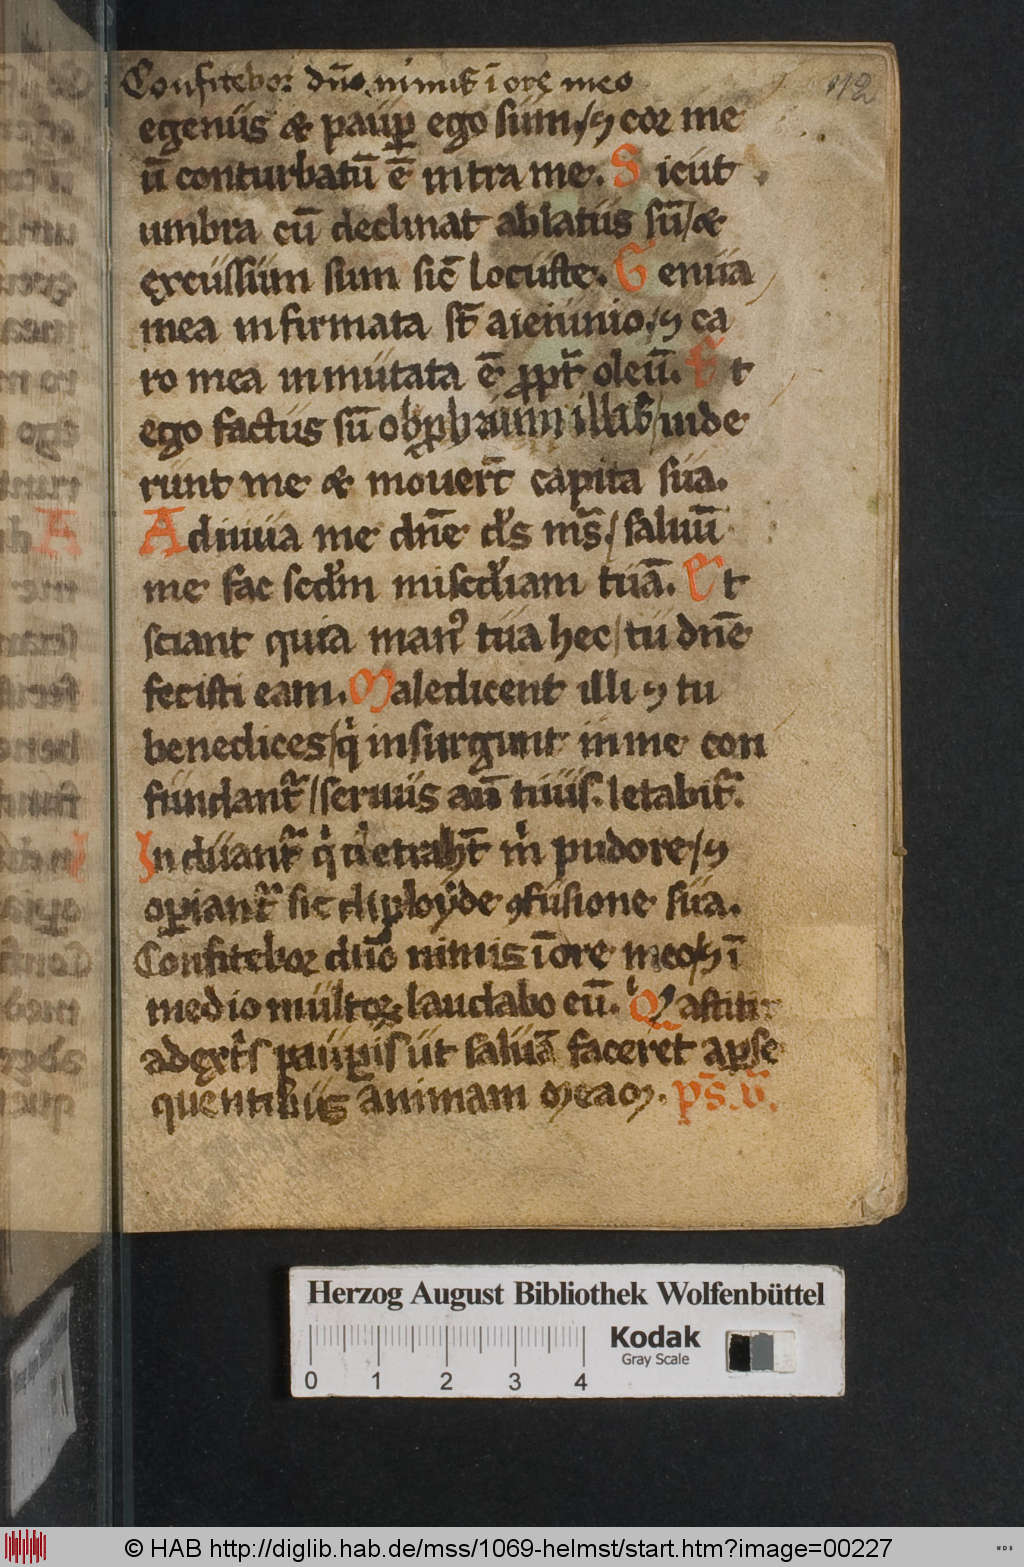 Confitebor dn̄o nimis ī ore meo
112
egenus & paup̲ ego sum / ⁊ cor me
ū conturbatū ē intra me. Sicut
umbra cū declinat ablatus sū / &
excussum sum sic̄ locuste. Genua
mea infirmata st̄ a ieiunio / ⁊ ca
ro mea inmutata ē ꝓpt̄ oleū. Et
ego factus sū obꝓbrium illis / uide
runt me & mouert̄ capita sua.
Adiuua me dn̄e d's ms̄ / saluū
me fac scd'm misc'diam tuā. Et
sciant quia man' tua hec / tu dn̄e
fecisti eam. Maledicent illi ⁊ tu
benedices / q̇ insurgunt in me con
fundant' / seruus au tuus letabit'.
Induant' q̇ detraht̄ ṁ pudore / ⁊
opiant' sic diployde ꝯfusione sua.
Confitebor dn̄o nimis ī ore meo / ⁊ ī
medio multoꝝ laudabo eū. Q astitit
a dext's paupis ut saluā faceret a pse
quentibus animam meam. ps. v̄.
Herzog August Bibliothek Wolfenbüttel
0 1 2 3 4
Kodak
Gray Scale
© HAB http://diglib.hab.de/mss/1069-helmst/start.htm?image=00227